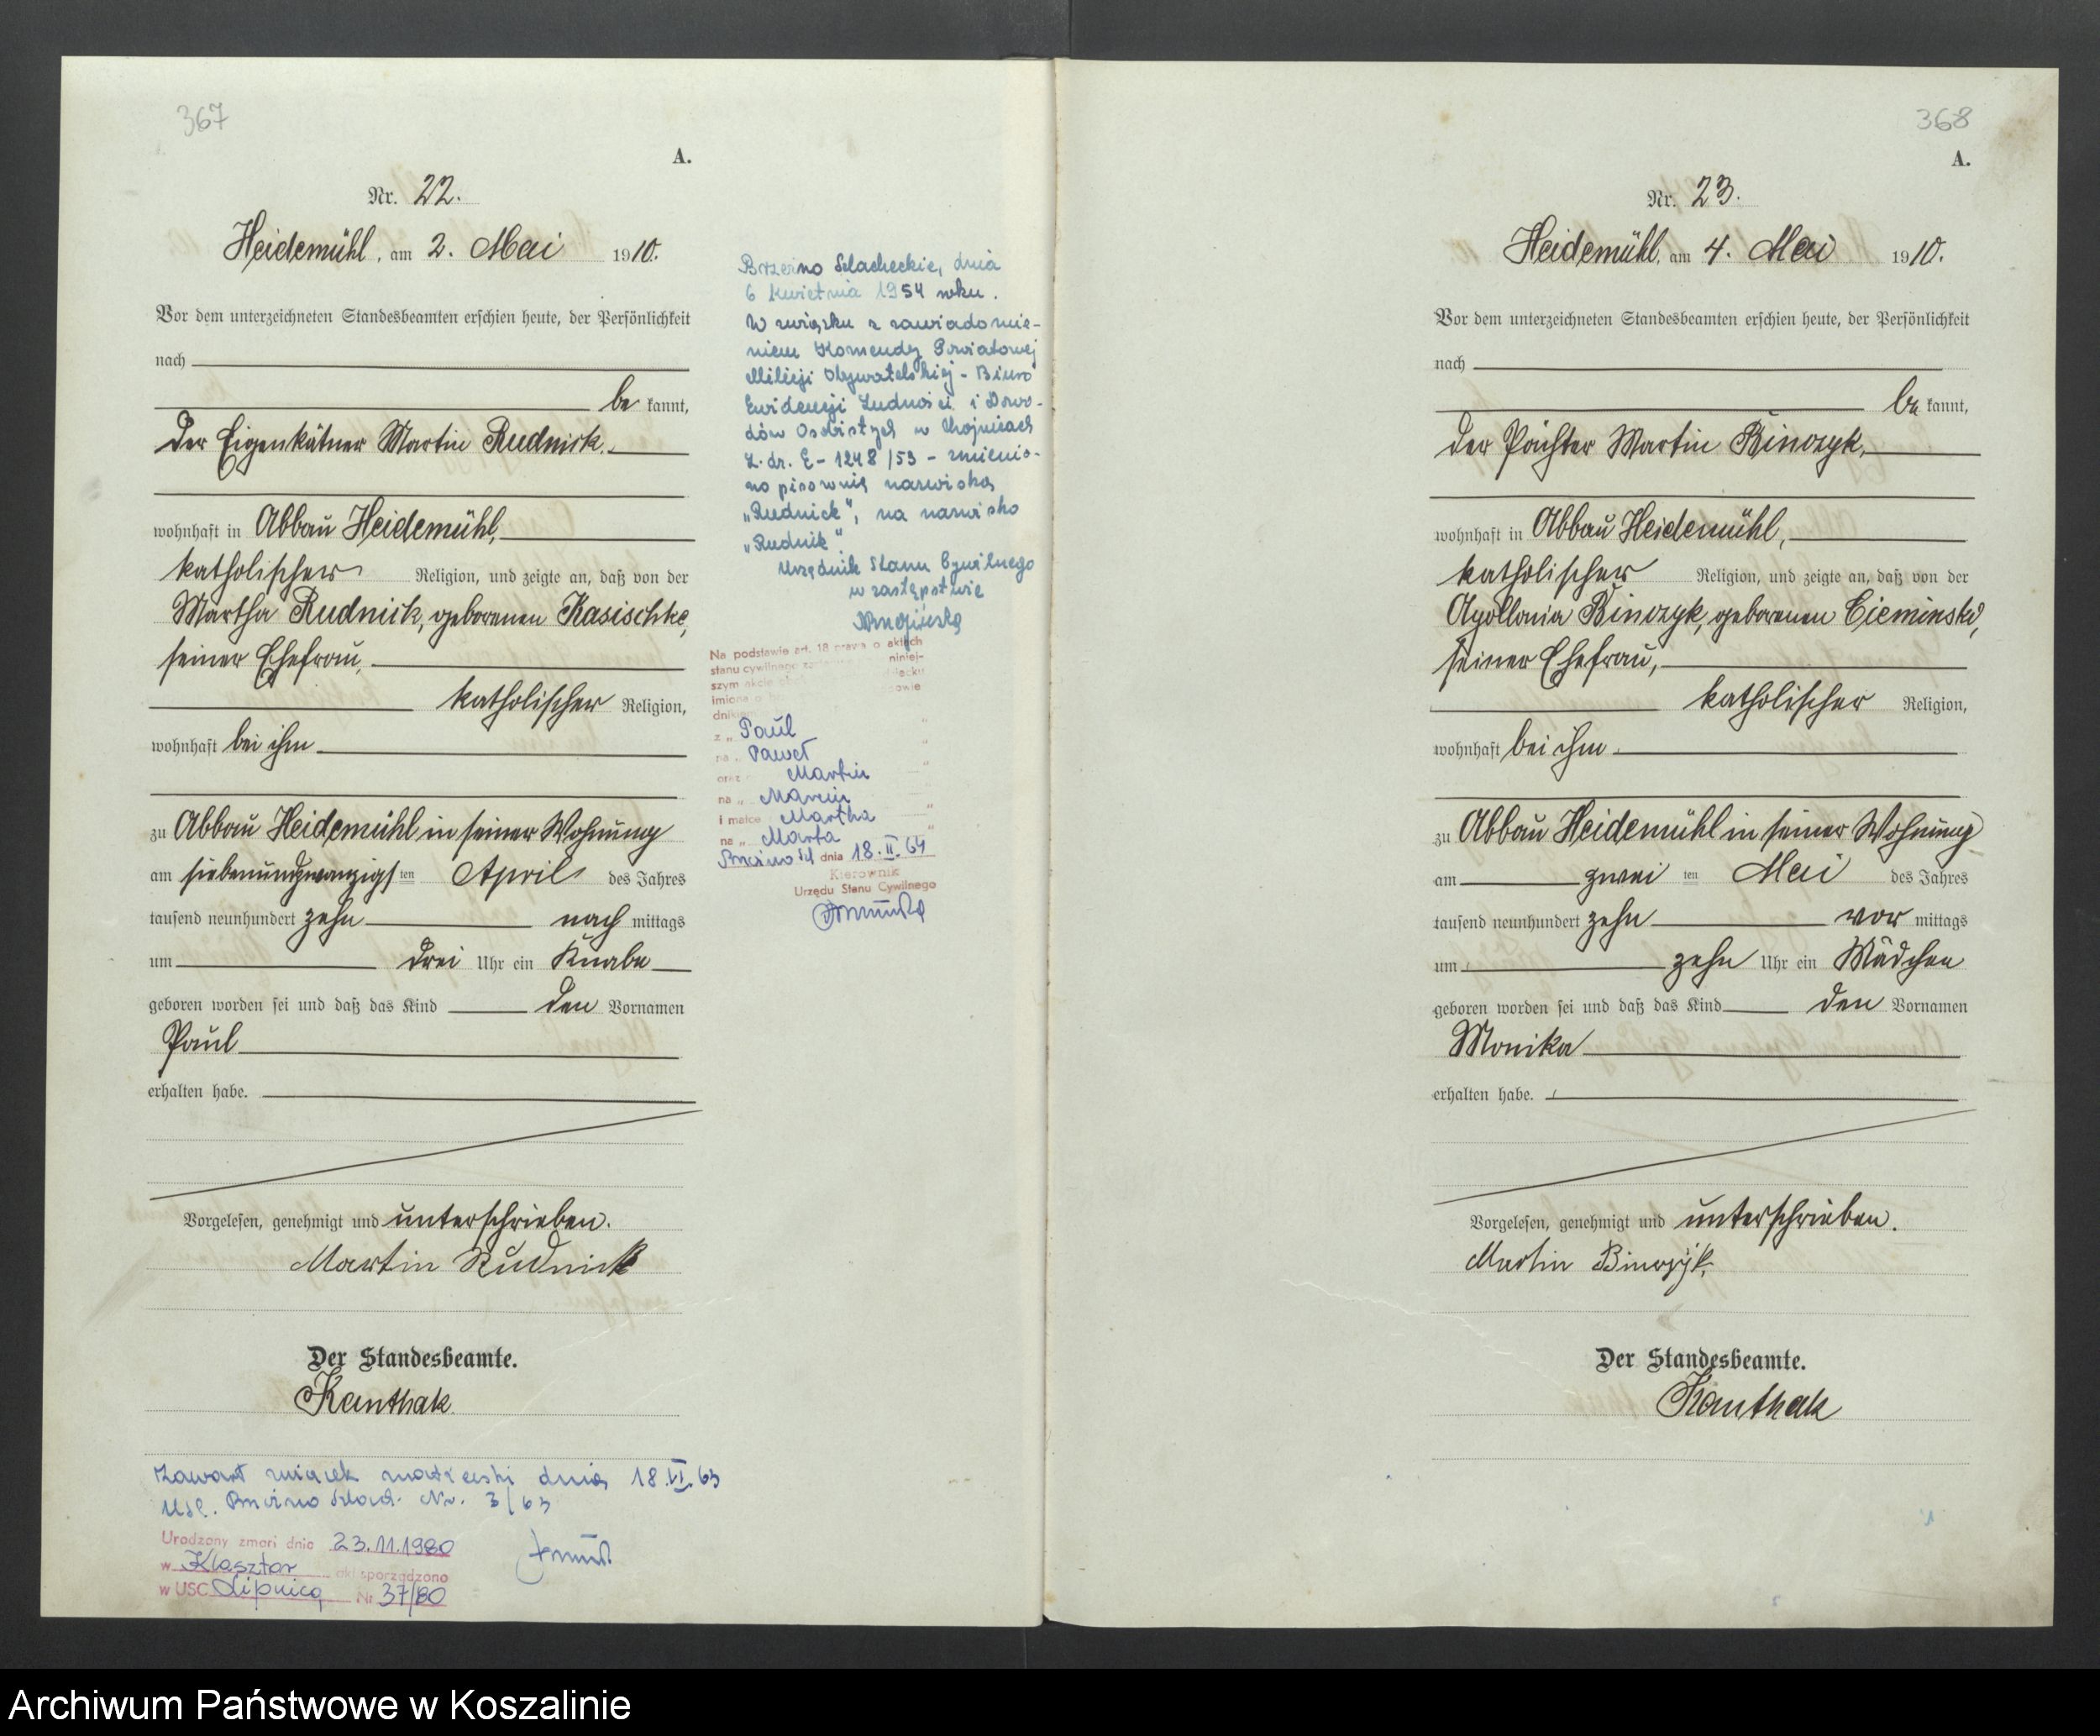 367
A.
Nr. 22.
Heidemühl, am 2. Mai 1910.
Vor dem unterzeichneten Standesbeamten erschien heute, der Persönlichkeit
nach
be kannt,
der Eigenkätner Martin Rudnick,
wohnhaft in Abbau Heidemühl,
katholischer Religion, und zeigte an, daß von der
Martha Rudnick, geborenen Kasischke,
seiner Ehefrau,
katholischer Religion,
wohnhaft bei ihm
zu Abbau Heidemühl in seiner Wohnung
am siebenundzwanzigsten April des Jahres
tausend neunhundert zehn nach mittags
um drei Uhr ein Knabe
geboren worden sei und daß das Kind den Vornamen
Paul
erhalten habe.
Vorgelesen, genehmigt und unterschrieben.
Martin Rudnick
Der Standesbeamte.
Kanthak
Zawarł związek małżeński dnia 18.VI.63
USC. Brzeźno Szlach. Nr. 3/63
Urodzony zmarł dnia 23.11.1980
w Klasztor akt sporządzono
w USC Lipnica Nr 37/80
Brzeźno Szlacheckie, dnia
6 kwietnia 1954 roku.
W związku z zawiadomie-
niem Komendy Powiatowej
Milicji Obywatelskiej - Biuro
Ewidencji Ludności i Dowo-
dów Osobistych w Chojnicach
L. dz. E - 1248/53 - zmienio-
no pisownię nazwiska
„Rudnick", na nazwisko
„Rudnik".
Urzędnik Stanu Cywilnego
w zastępstwie
Na podstawie art. 18 prawa o aktach
stanu cywilnego niniej-
szym akcie
z „ Paul
na „ Paweł
oraz Martin
na „ Marcin
i matce Martha
na „ Marta
dnia 18.II.64
Kierownik
Urzędu Stanu Cywilnego
368
A.
Nr. 23.
Heidemühl, am 4. Mai 1910.
Vor dem unterzeichneten Standesbeamten erschien heute, der Persönlichkeit
nach
be kannt,
der Pächter Martin Binczyk,
wohnhaft in Abbau Heidemühl,
katholischer Religion, und zeigte an, daß von der
Apollonia Binczyk, geborenen Cieminski,
seiner Ehefrau,
katholischer Religion,
wohnhaft bei ihm
zu Abbau Heidemühl in seiner Wohnung
am zwei ten Mai des Jahres
tausend neunhundert zehn vor mittags
um zehn Uhr ein Mädchen
geboren worden sei und daß das Kind den Vornamen
Monika
erhalten habe.
Vorgelesen, genehmigt und unterschrieben.
Martin Binczyk,
Der Standesbeamte.
Kanthak
Archiwum Państwowe w Koszalinie